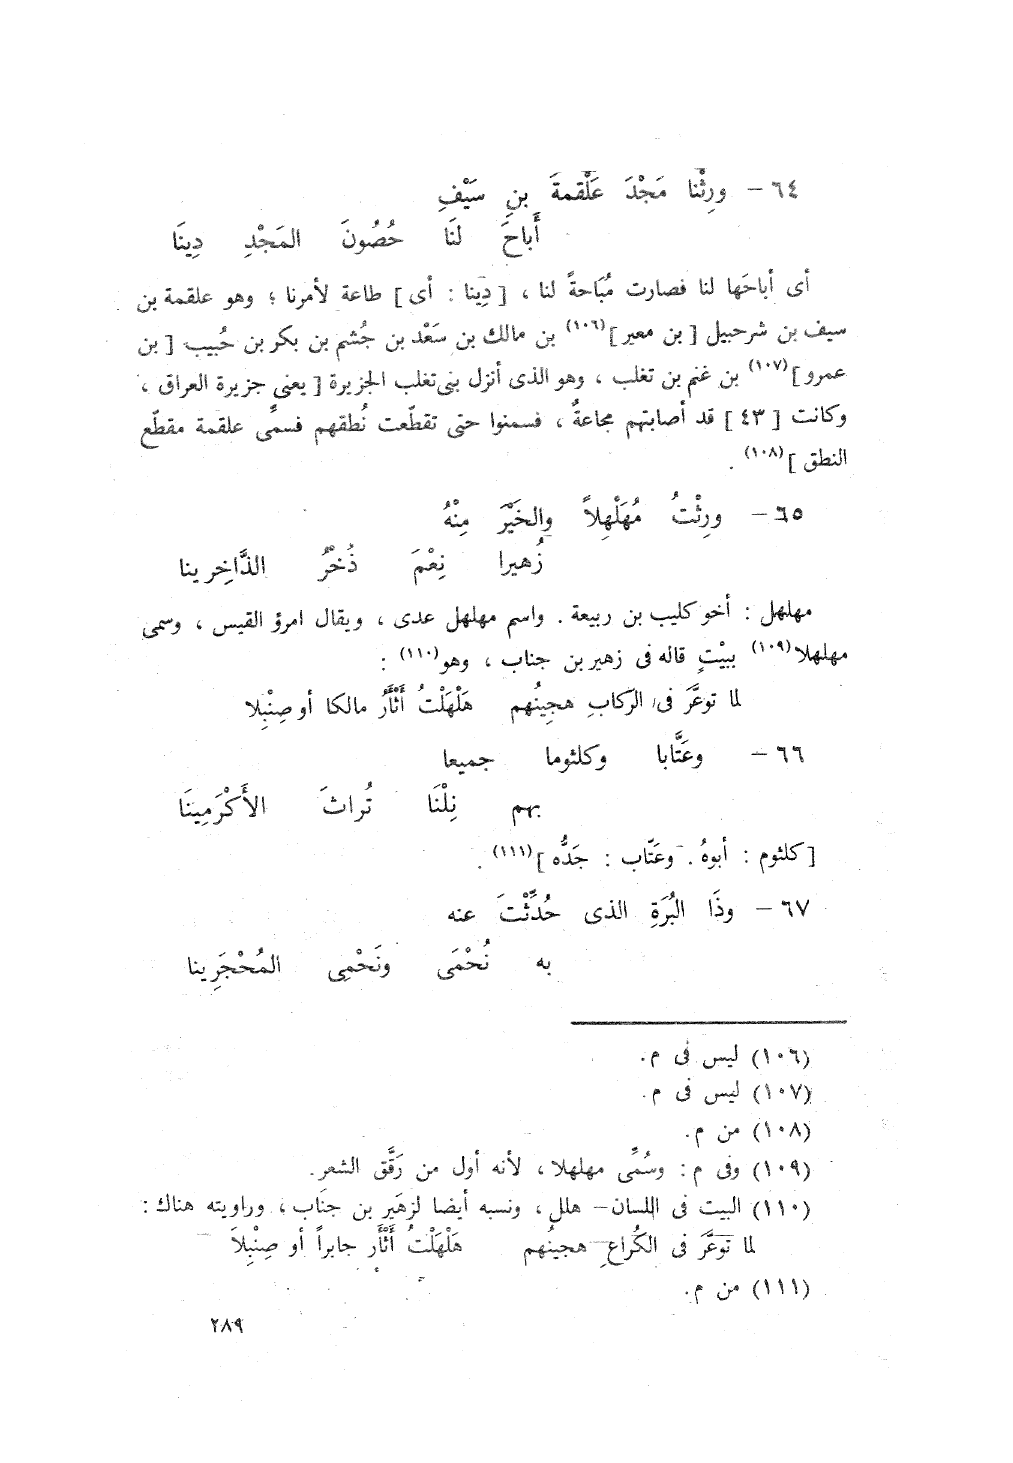 ٦٤ – ورِثْنا مَجْدَ عَلْقمةَ بنِ سَيْفِ
أَباحَ لنَا حُصُونَ المَجْدِ دِينَا
أى أباحَها لنا فصارت مُبَاحةً لنا ، [ دِينا : أى ] طاعة لأمرنا ؛ وهو علقمة بن
سيف بن شرحبيل [ بن معير ](١٠٦) بن مالك بن سَعْد بن جُشم بن بكر بن حُبيب [ بن
عمرو ](١٠٧) بن غنم بن تغلب ، وهو الذى أنزل بنى تغلب الجزيرة [ يعنى جزيرة العراق ،
وكانت [ ٤٣ ] قد أصابتهم مجاعةٌ ، فسمنوا حتى تقطّعت نُطقهم فسمِّى علقمة مقطّع
النطق ](١٠٨) .
٦٥ – ورِثْتُ مُهَلْهِلاً والخَيْرَ مِنْهُ
زُهيرا نِعْمَ ذُخْرُ الذَّاخِرينا
مهلهل : أخو كليب بن ربيعة . واسم مهلهل عدى ، ويقال امرؤ القيس ، وسمى
مهلهلا(١٠٩) ببيْتٍ قاله فى زهير بن جناب ، وهو(١١٠) :
لما توعَّرَ فى الرّكابِ هجينُهم هَلْهَلْتُ أَثْأَرُ مالكا أو صِنْبِلا
٦٦ – وعَتَّابا وكلثوما جميعا
بهم نِلْنَا تُراثَ الأَكْرَمِينَا
[ كلثوم : أبوهُ . وعَتّاب : جَدُّه ](١١١) .
٦٧ – وذَا البُرَةِ الذى حُدِّثْتَ عنه
به نُحْمَى ونَحْمِى المُحْجَرِينا
(١٠٦) ليس فى م.
(١٠٧) ليس فى م.
(١٠٨) من م.
(١٠٩) وفى م : وسُمِّى مهلهلا ، لأنه أول من رَقَّق الشعر.
(١١٠) البيت فى اللسان – هلل ، ونسبه أيضا لزهَير بن جنَاب ، وراويته هناك :
لما تَوعَّرَ فى الكُراعِ هجينُهم هَلْهَلْتُ أَثْأَر جابراً أو صِنْبِلاَ
(١١١) من م.
٢٨٩